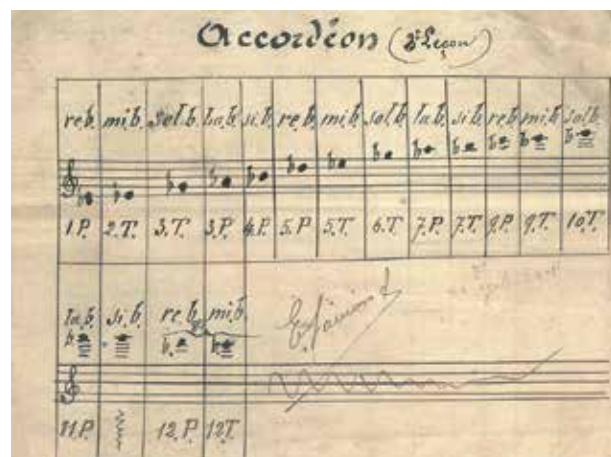 Accordéon (2e Leçon)
re.b. mi.b. sol.b. La.b. si.b. re.b. mi.b. sol.b. la.b. si.b. re.b. mi.b. sol.b
1.P. 2.T. 3.T. 3.P. 4.P. 5.P 5.T. 6.T. 7.P. 7.T. 9.P. 9.T. 10.T
la.b. si.b. re.b. mi.b.
11.P. 12.P. 12.T